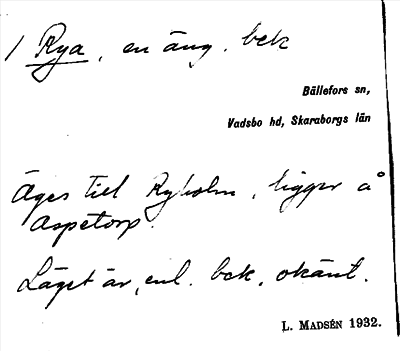 1 Rya, en äng. bek
Bällefors sn,
Vadsbo hd, Skaraborgs län
Äges till Ryholm, ligger å
Aspetorp.
Läget är, enl. bek, okänt.
L. MADSÉN 1932.